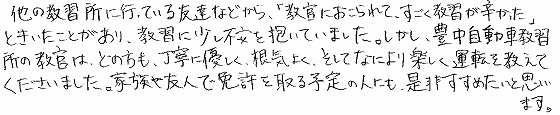 他の教習所に行っている友達などから、「教官におこられて、すごく教習が辛かった」
ときいたことがあり、教習に少し不安を抱いていました。しかし、豊中自動車教習
所の教官は、どの方も、丁寧に優しく、根気よく、そしてなにより楽しく運転を教えて
くださいました。家族や友人で免許を取る予定の人にも、是非すすめたいと思い
ます。